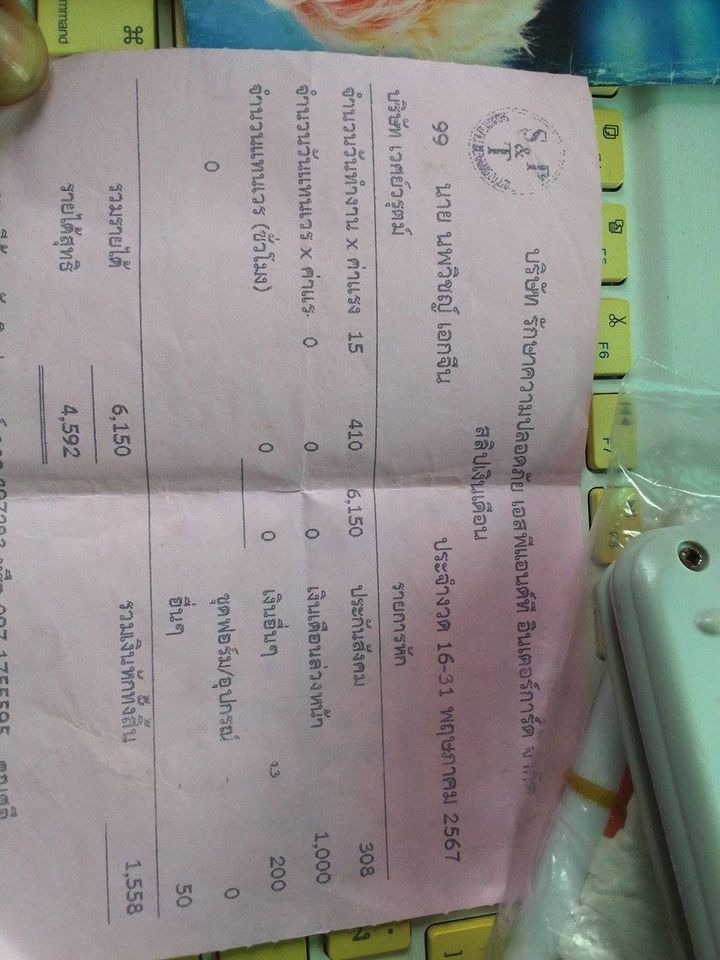 S & P
T
บริษัท รักษาความปลอดภัย เอสพีแอนด์ที อินเตอร์การ์ด
สลิปเงินเดือน
99 นาย นพวิชญ์ เอกจีน ประจำงวด 16-31 พฤษภาคม 2567
บริษัท เวศย์วรุตม์ รายการหัก
จำนวนวันทำงาน x ค่าแรง 15 410 6,150 ประกันสังคม 308
จำนวนวันแทนเวร x ค่าแร 0 0 0 เงินเดือนล่วงหน้า 1,000
จำนวนแทนเวร (ชั่วโมง) 0 0 เงินอื่นๆ ง.3 200
0 ชุดฟอร์ม/อุปกรณ์ 0
อื่นๆ 50
รวมรายได้ 6,150 รวมเงินหักทั้งสิ้น 1,558
รายได้สุทธิ 4,592
command
⌘
F5
F6
F7